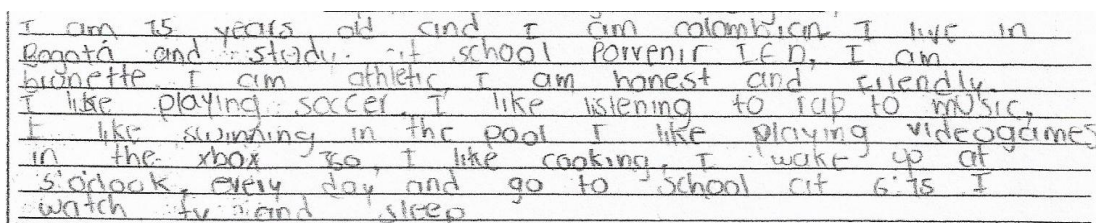 I am 15 years old and I am colombian I live in
Bogotá and study at school Porvenir I.E.D, I am
brunette I am athletic, I am honest and friendly.
I like playing soccer. I like listening to rap to music,
I like swimming in the pool I like playing videogames
in the xbox 360, I like cooking, I wake up at
5 o'clock, every day and go to school at 6:15 I
watch tv and sleep